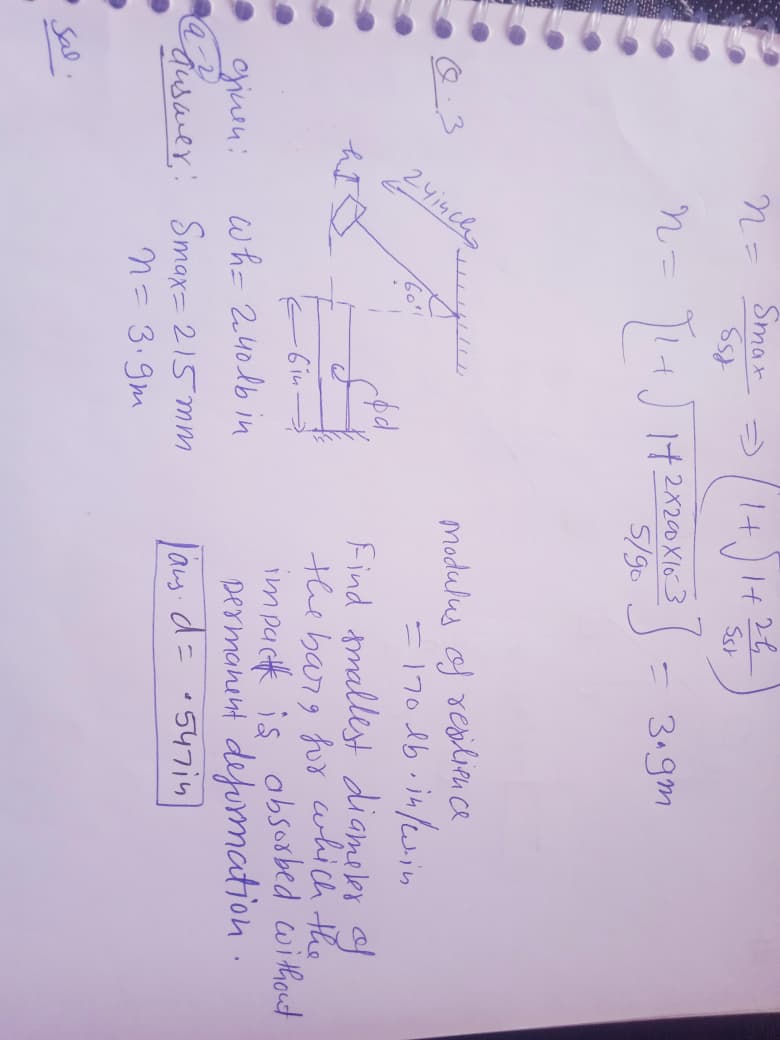 n = δmax/δst ⇒ (1+√1+2h/δst)
n = {1+√1+2×200×10-3/51/90} = 3.9m
Q.3
24inch
60°
h
ϕd
6in
modulus of resilience
= 170 lb.in/cu.in
Find smallest diameter of
the bar, for which the
impact is absorbed without
permanent deformation.
given: wh = 240 lb in
ans. d = .547in
Q-2
answer: δmax = 215mm
n = 3.9m
Sol.